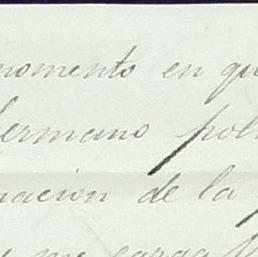 momento en qu
hermano pol
nacion de la
y me carga